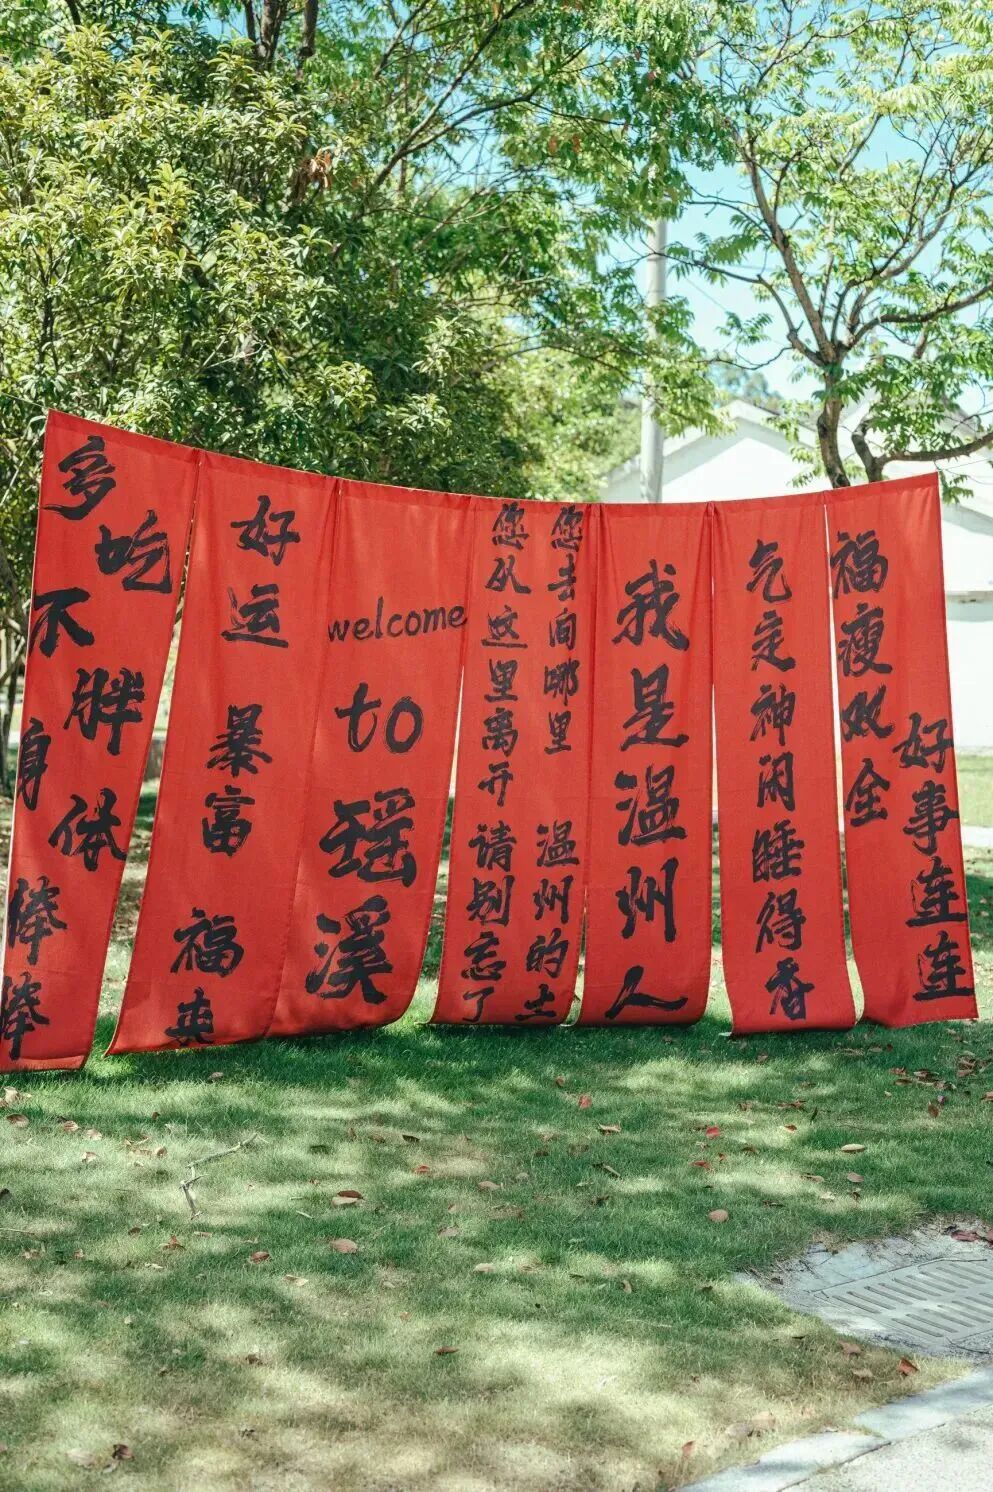 多吃不胖
身体棒棒
好运
暴富
福
welcome
to
瑶溪
您从这里离开
请别忘了
您去向哪里
温州的土
我是温州人
气定神闲睡得香
福瘦双全
好事连连